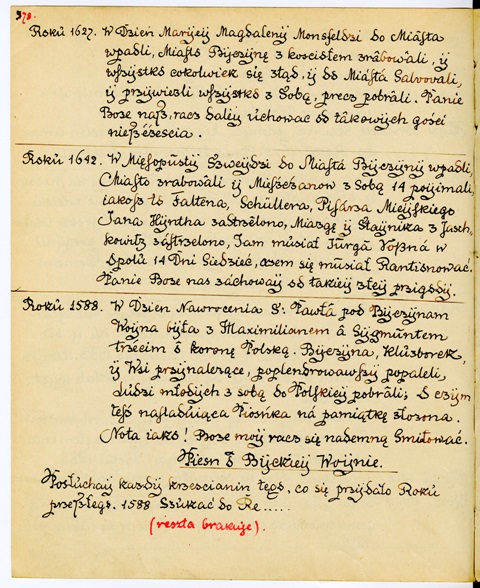 378.
Roku 1627. W Dzień Maryjey Magdaleny Monsfeldzi do Miásta
wpadli, Miásto Byczynę z kosciołem zrábowáli, y
wszystko cokolwiek się stąd, y do Miásta Salvowáli,
y przywiezli wszystko z Sobą, precz pobráli. Panie
Boze nasz, racz dáley uchować od tákowych gości
nieszczescia.
Roku 1642. W Mięsopusty Szweydzi do Miastá Byczyny wpadli,
Miásto zrabowáli y Mieszczanow z Sobą 14 poyimali,
iákosz to Faltena, Schüllera, Pisárza Mieyskiego
Jana Hyntha zástrzelono, Miazgę y Staynika z Jasch-
kowitz zástrzelono, Tam musiał Jurga Voszná w
Spolu 14 Dni Siedzieć, azem się musiał Rantisnowáć.
Pánie Boze nas záchoway od tákiey złey przigody.
Roku 1588. W Dzien Nawrocenia S: Páwła pod Byczynam
Woyna była z Maximilianem á Sygmuntem
trzecim o koronę Polską. Byczyna, Kluzborek,
y Wsi przynalezące, poplondrowawszy popaleli,
Ludzi młodych z sobą do Polskiey pobráli; O czym
tesz nasladuiąca Piosnka ná pamiątkę złozona.
Nota iáko! Boze moy racz się nademną Smiłowáć.
Piesn o Byckiey Woynie.
Posłuchay kazdy krzescianin tego, co się przydáło Roku
przeszłego. 1588 Szukáć do Re.....
(reszta brakuje).